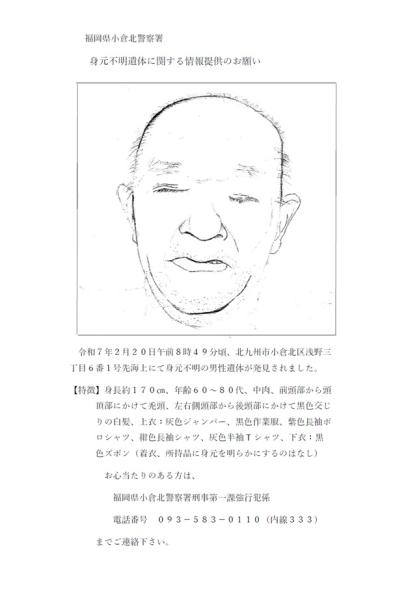 福岡県小倉北警察署
身元不明遺体に関する情報提供のお願い
令和７年２月２０日午前８時４９分頃、北九州市小倉北区浅野三
丁目６番１号先海上にて身元不明の男性遺体が発見されました。
【特徴】身長約１７０㎝、年齢６０～８０代、中肉、前頭部から頭
頂部にかけて禿頭、左右側頭部から後頭部にかけて黒色交じ
りの白髪、上衣：灰色ジャンバー、黒色作業服、紫色長袖ポ
ロシャツ、紺色長袖シャツ、灰色半袖Ｔシャツ、下衣：黒
色ズボン（着衣、所持品に身元を明らかにするのはなし）
お心当たりのある方は、
福岡県小倉北警察署刑事第一課強行犯係
電話番号　０９３－５８３－０１１０（内線３３３）
までご連絡下さい。